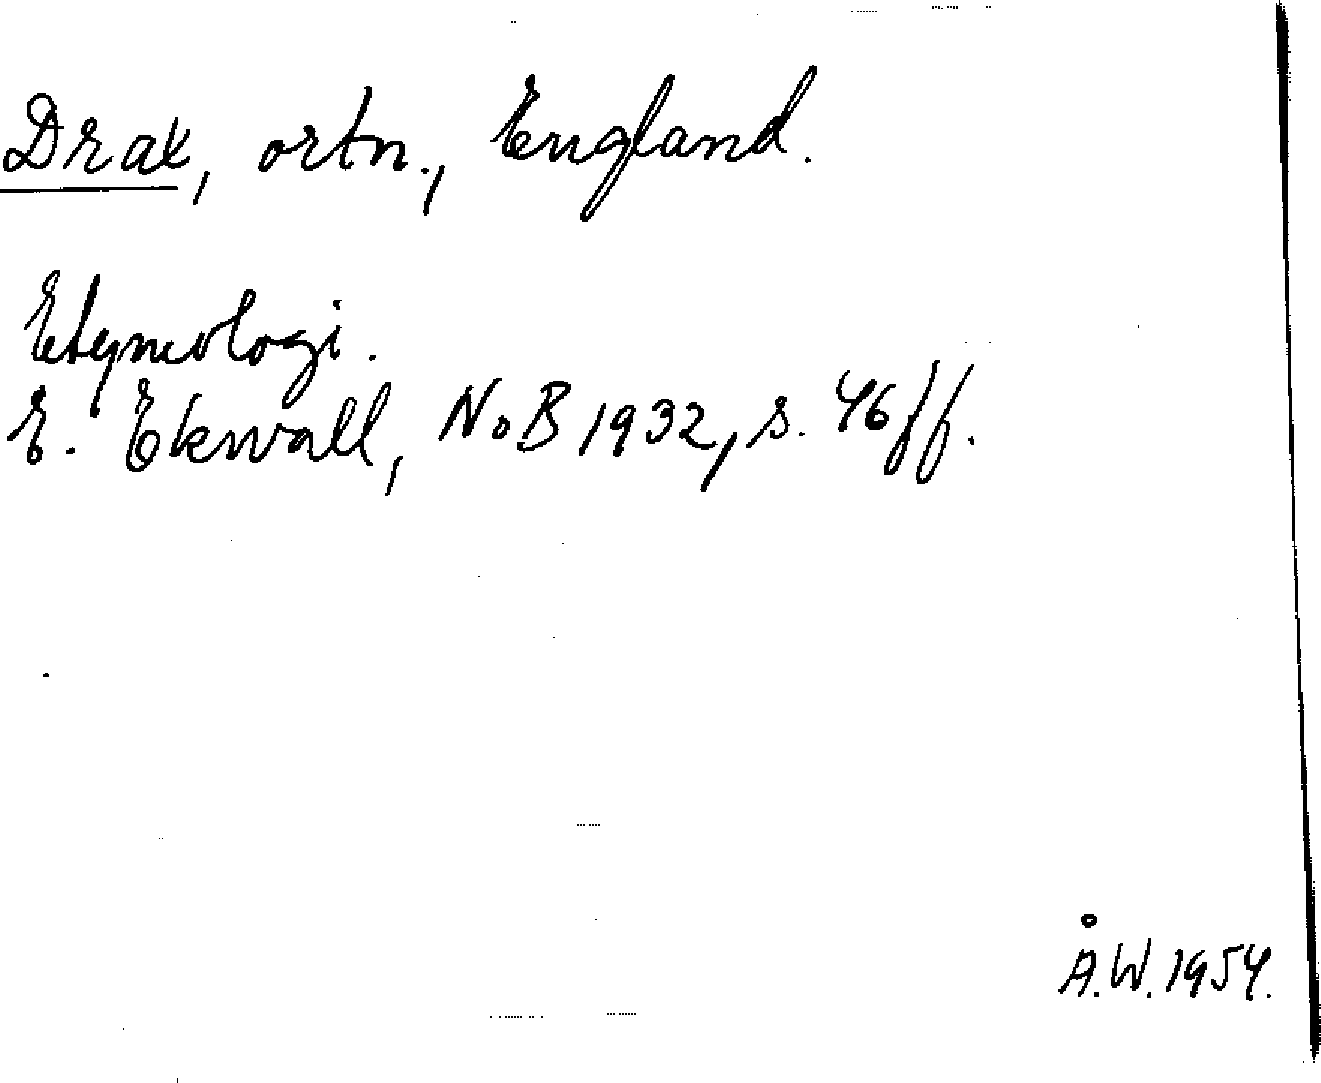 Drax, ortn., England.
Etymologi.
E. Ekwall, NoB 1932, s. 46 ff.
Å.W. 1954.